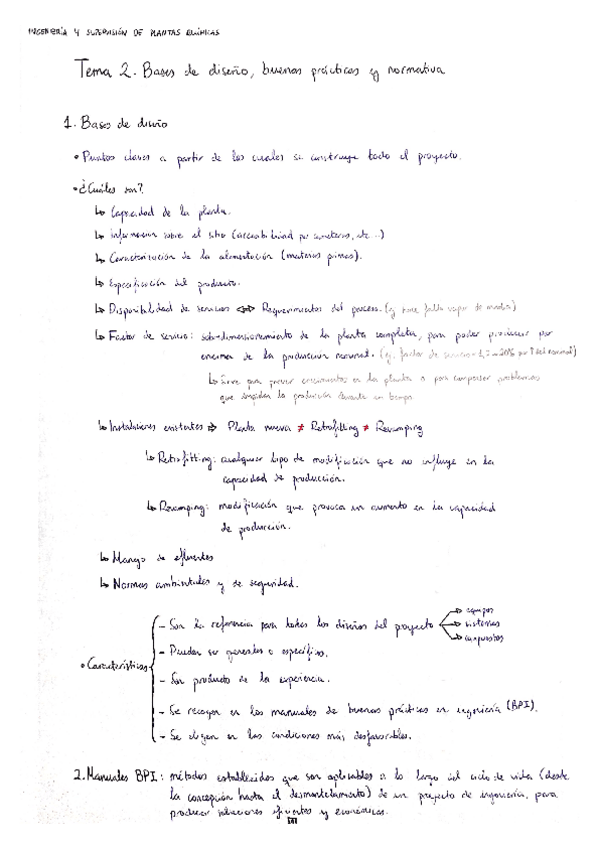 INGENIERÍA Y SUPERVISIÓN DE PLANTAS QUÍMICAS
Tema 2. Bases de diseño, buenas prácticas y normativa
1. Bases de diseño
• Puntos claves a partir de los cuales se construye todo el proyecto.
• ¿Cuáles son?
↳ Capacidad de la planta.
↳ Información sobre el sitio (accesibilidad por carreteras, etc...)
↳ Caracterización de la alimentación (materias primas).
↳ Especificación del producto.
↳ Disponibilidad de servicios ⇔ Requerimientos del proceso. (ej. hace falta vapor de media)
↳ Factor de servicio: sobredimensionamiento de la planta completa, para poder producir por
encima de la producción nominal. (ej. factor de servicio = 1,2 → 20% por ↑ del nominal)
↳ Sirve para prever crecimientos en la planta o para compensar problemas
que impidan la producción durante un tiempo
↳ Instalaciones existentes ⇒ Planta nueva ≠ Retrofitting ≠ Revamping
↳ Retrofitting: cualquier tipo de modificación que no influye en la
capacidad de producción.
↳ Revamping: modificación que provoca un aumento en la capacidad
de producción.
↳ Manejo de efluentes
↳ Normas ambientales y de seguridad.
• Características
- Son la referencia para todos los diseños del proyecto → equipos
→ sistemas
→ compuestos
- Pueden ser generales o específicos.
- Son producto de la experiencia.
- Se recogen en los manuales de buenas prácticas en ingeniería (BPI).
- Se eligen en las condiciones más desfavorables.
2. Manuales BPI: métodos establecidos que son aplicables a lo largo del ciclo de vida (desde
la concepción hasta el desmantelamiento) de un proyecto de ingeniería, para
producir soluciones eficientes y económicas.